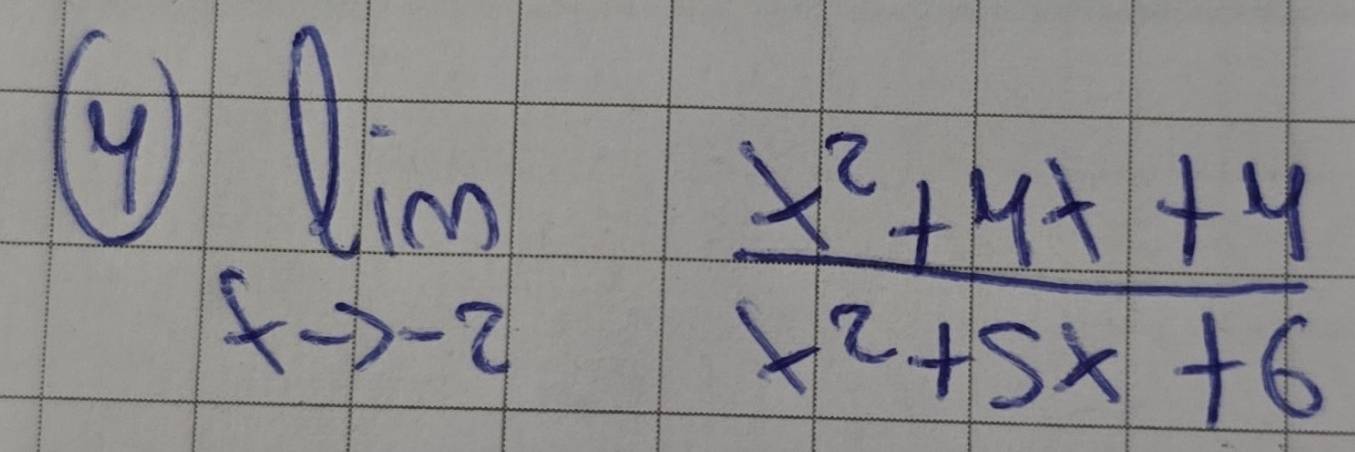 ④ lim x→-2 (x²+4x+4)/(x²+5x+6)